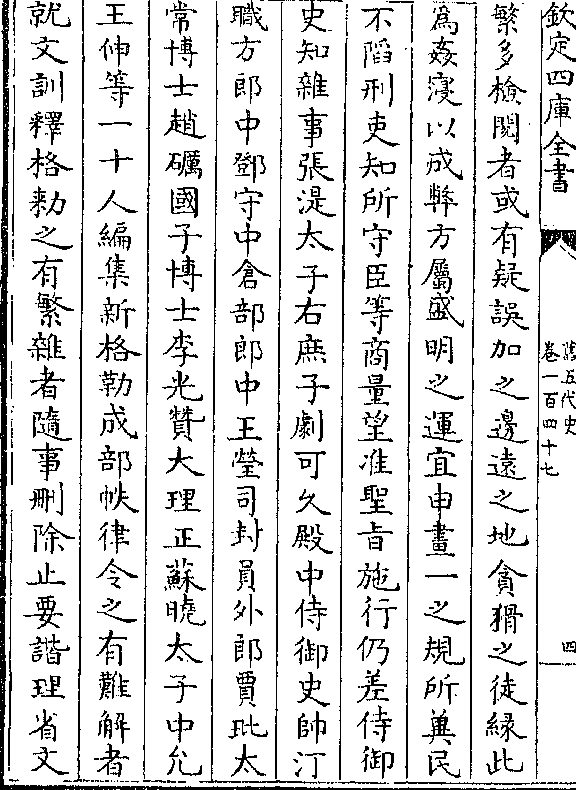 欽定四庫全書
舊五代史
卷一百四十七
四
繁多檢閱者或有疑誤加之邊遠之地貪猾之徒緣此
為姦寖以成弊方屬盛明之運宜申畫一之規所冀民
不䧟刑吏知所守臣等商量望准聖旨施行仍差侍御
史知雜事張湜太子右庶子劇可久殿中侍御史帥汀
職方郎中鄧守中倉部郎中王瑩司封員外郎賈玭太
常博士趙礪國子博士李光贊大理正蘇曉太子中允
王伸等一十人編集新格勒成部帙律令之有難解者
就文訓釋格勅之有繁雜者隨事刪除止要諧理省文